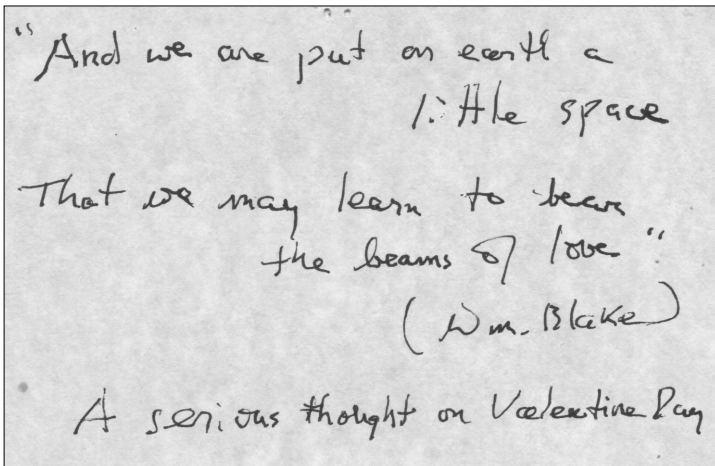 "And we are put on earth a
little space
That we may learn to bear
the beams of love"
(Wm. Blake)
A serious thought on Valentine Day